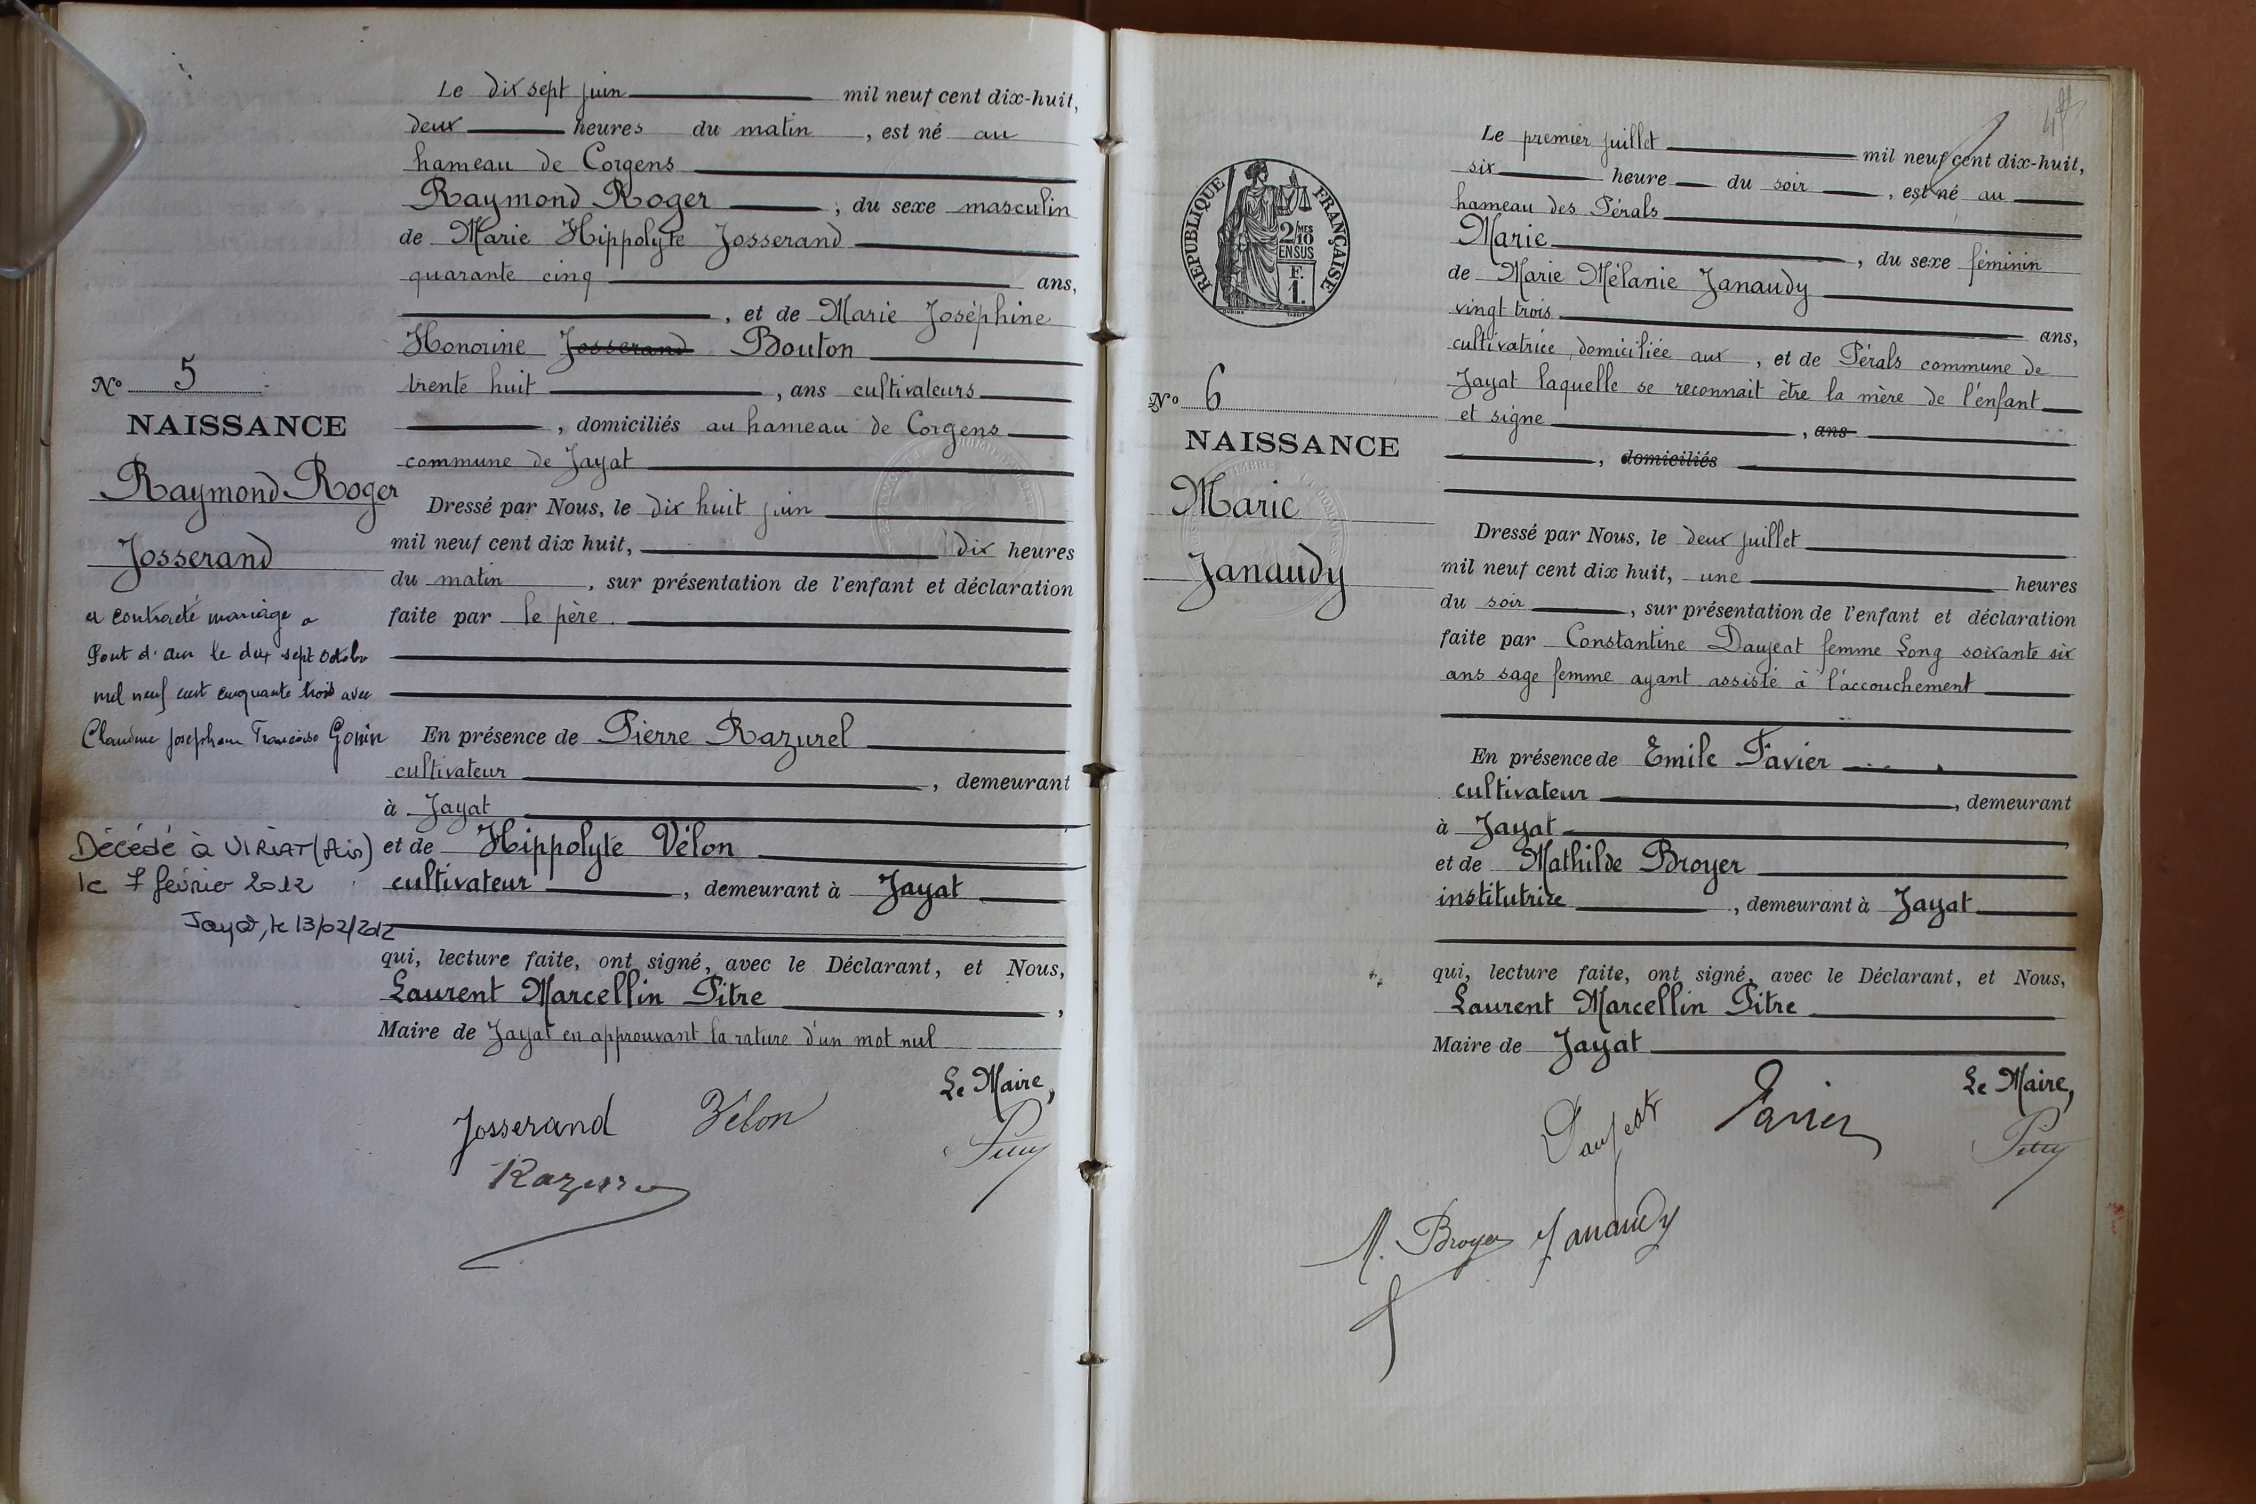 Le dix sept juin mil neuf cent dix-huit,
deux heures du matin, est né au
hameau de Corgens
Raymond Roger, du sexe masculin
de Marie Hippolyte Josserand
quarante cinq ans,
, et de Marie Joséphine
Honorine Josserand Bouton
trente huit, ans cultivateurs
, domiciliés au hameau de Corgens
commune de Jayat
Dressé par Nous, le dix huit juin
mil neuf cent dix huit, dix heures
du matin, sur présentation de l'enfant et déclaration
faite par le père.
En présence de Pierre Razurel
cultivateur, demeurant
à Jayat
et de Hippolyte Vélon
cultivateur, demeurant à Jayat
qui, lecture faite, ont signé, avec le Déclarant, et Nous,
Laurent Marcellin Pitre,
Maire de Jayat en approuvant la rature d'un mot nul
Le Maire,
Josserand Vélon
No 5
NAISSANCE
Raymond Roger
Josserand
a contracté mariage a
Pont d'ain le dix sept octobre
mil neuf cent cinquante trois avec
Claudine Josephine Françoise Gonin
Décédé à VIRIAT (Ain)
le 7 février 2012
Jayat, le 13/02/2012
RÉPUBLIQUE FRANÇAISE
2/10 MES
EN SUS
F.
1.
No 6
NAISSANCE
Marie
Janaudy
Le premier juillet mil neuf cent dix-huit,
six heure du soir, est né au
hameau des Pérals
Marie, du sexe féminin
de Marie Mélanie Janaudy
vingt trois ans,
cultivatrice, domiciliée aux, et de Pérals commune de
Jayat laquelle se reconnait être la mère de l'enfant
et signe, ans
, domiciliés
Dressé par Nous, le deux juillet
mil neuf cent dix huit, une heures
du soir, sur présentation de l'enfant et déclaration
faite par Constantine Daujeat femme Long soixante six
ans sage femme ayant assisté à l'accouchement
En présence de Emile Favier
cultivateur, demeurant
à Jayat
et de Mathilde Broyer
institutrice, demeurant à Jayat
qui, lecture faite, ont signé, avec le Déclarant, et Nous,
Laurent Marcellin Pitre
Maire de Jayat
Le Maire,
Daujeat Favier
M. Broyer Janaudy